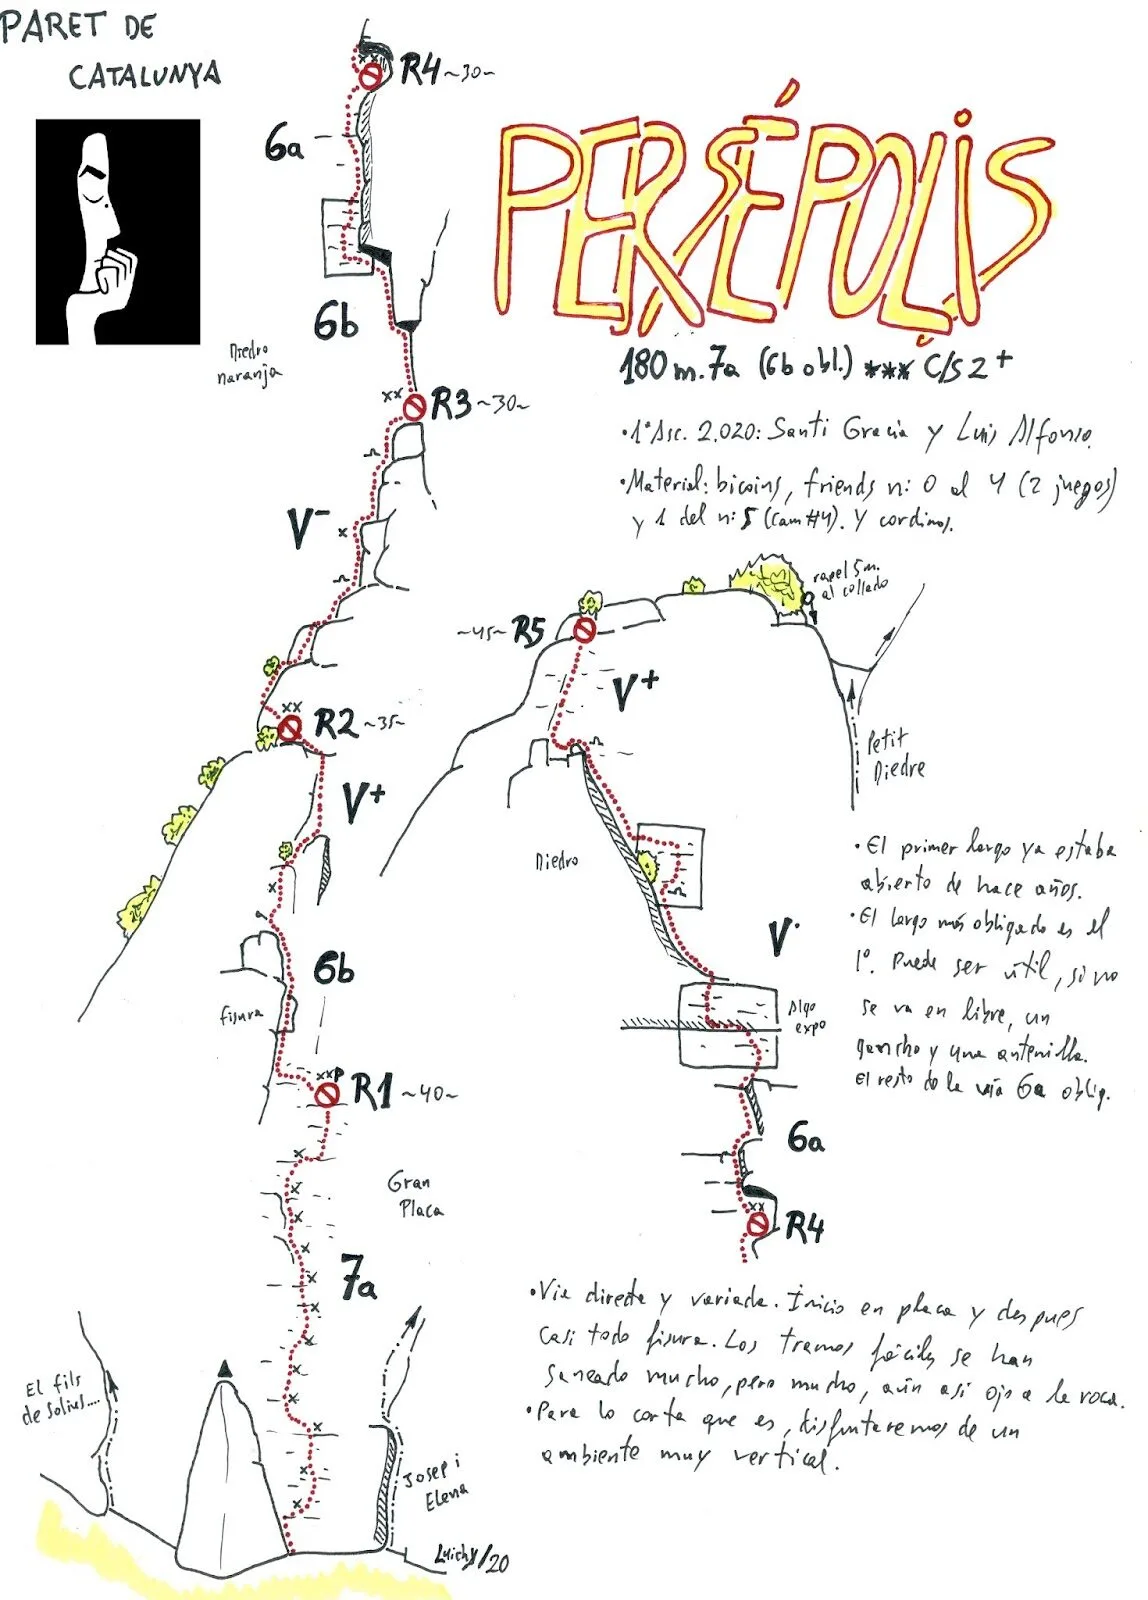 PARET DE
CATALUNYA
R4 ~30~
6a
6b
Diedro
naranja
R3 ~30~
V-
R2 ~35~
V+
6b
fisura
R1 ~40~
xxP
Gran
Placa
7a
El fils
de Solius....
Josep i
Elena
Luichy/20
PERSÉPOLIS
180 m. 7a (6b obl.) *** C/S 2+
•1ª Asc. 2.020: Santi Gracia y Luis Alfonso.
•Material: bicoins, friends nº 0 al 4 (2 juegos)
y 1 del nº 5 (Cam #4). Y cordinos.
rapel 5m.
al collado
~45~ R5
V+
Petit
Diedre
Diedro
V·
Algo
expo
6a
R4
•El primer largo ya estaba
abierto de hace años.
•El largo más obligado es el
1º. Puede ser útil, si no
se va en libre, un
gancho y una antenilla.
El resto de la vía 6a oblig.
•Vía directa y variada. Inicio en placa y despues
casi todo fisura. Los tramos fáciles se han
saneado mucho, pero mucho, aún así ojo a la roca.
•Para lo corta que es, disfrutaremos de un
ambiente muy vertical.